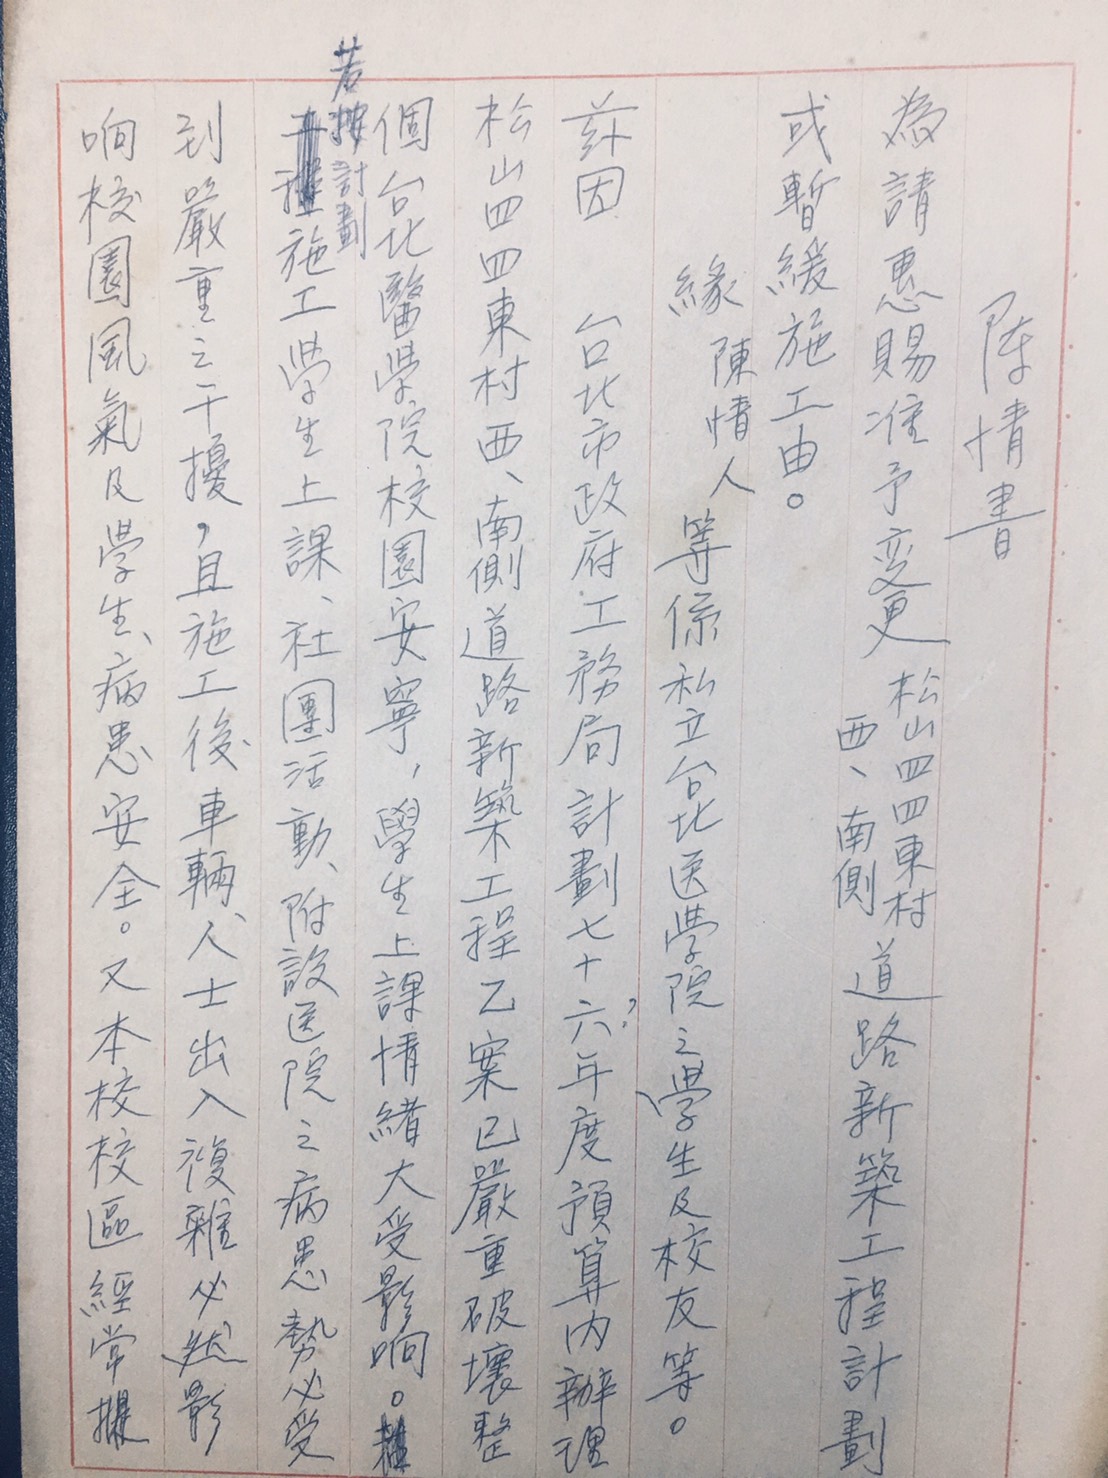 陳情書
為請惠賜准予変更松山四四東村西、南側道路新築工程計劃
或暫緩施工由。
緣陳情人等係私立台北医学院之學生及校友等。
茲因 台北市政府工務局計劃七十六年度預算內辦理
松山四四東村西、南側道路新築工程乙案已嚴重破壞整
個台北醫學院校園安寧,學生上課情緒大受影响。
若按計劃施工學生上課、社團活動、附設医院之病患勢必受
到嚴重之干擾,且施工後車輛、人士出入複雜必然影
响校園風氣及學生、病患安全。又本校校區經常